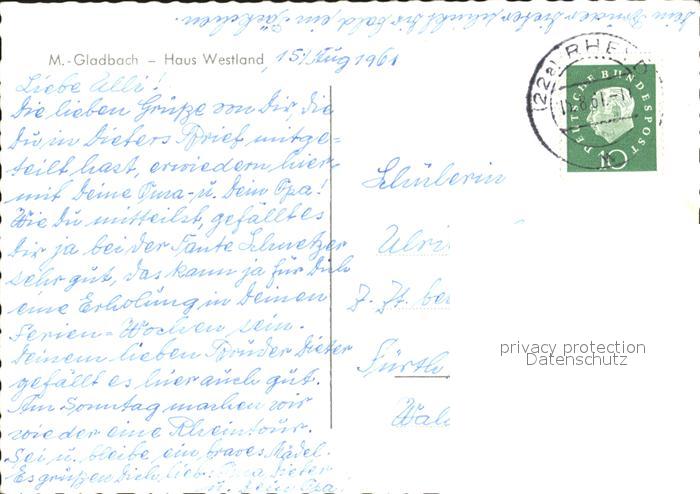 Dein Bruder Dieter schickt Dir bald ein Päckchen.
M.-Gladbach – Haus Westland, 15. Aug 1961
Liebe Ulli!
Die lieben Grüße von Dir, die
Du in Dieters Brief mitge-
teilt hast, erwiedern hier-
mit Deine Oma- u. Dein Opa!
Wie Du mitteilst, gefällt es
Dir ja bei der Tante Schnetzer
sehr gut, das kann ja für Dich
eine Erholung in Deinen
Ferien-Wochen sein.
Deinem lieben Brüder Dieter
gefällt es hier auch gut.
Am Sonntag machen wir
wieder eine Rheintour.
Sei u. bleibe ein braves Mädel.
Es grüßen Dich, lieb. Oma, Dieter
u. Dein Opa.
(22a) RHEYD
8.61.-1
DEUTSCHE BUNDESPOST
10
Schülerin
Ulri
z. Zt. bei
Fürth
Wal
privacy protection
Datenschutz